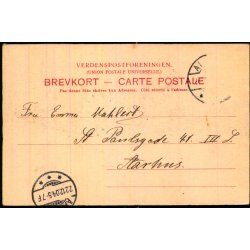 VERDENSPOSTFORENINGEN.
(UNION POSTALE UNIVERSELLE.)
BREVKORT — CARTE POSTALE
Paa denne Side skrives kun Adressen. Côté réservé à l'adresse.
Fru Emma Mahlert
St Paulsgade 41 III L
Aarhus